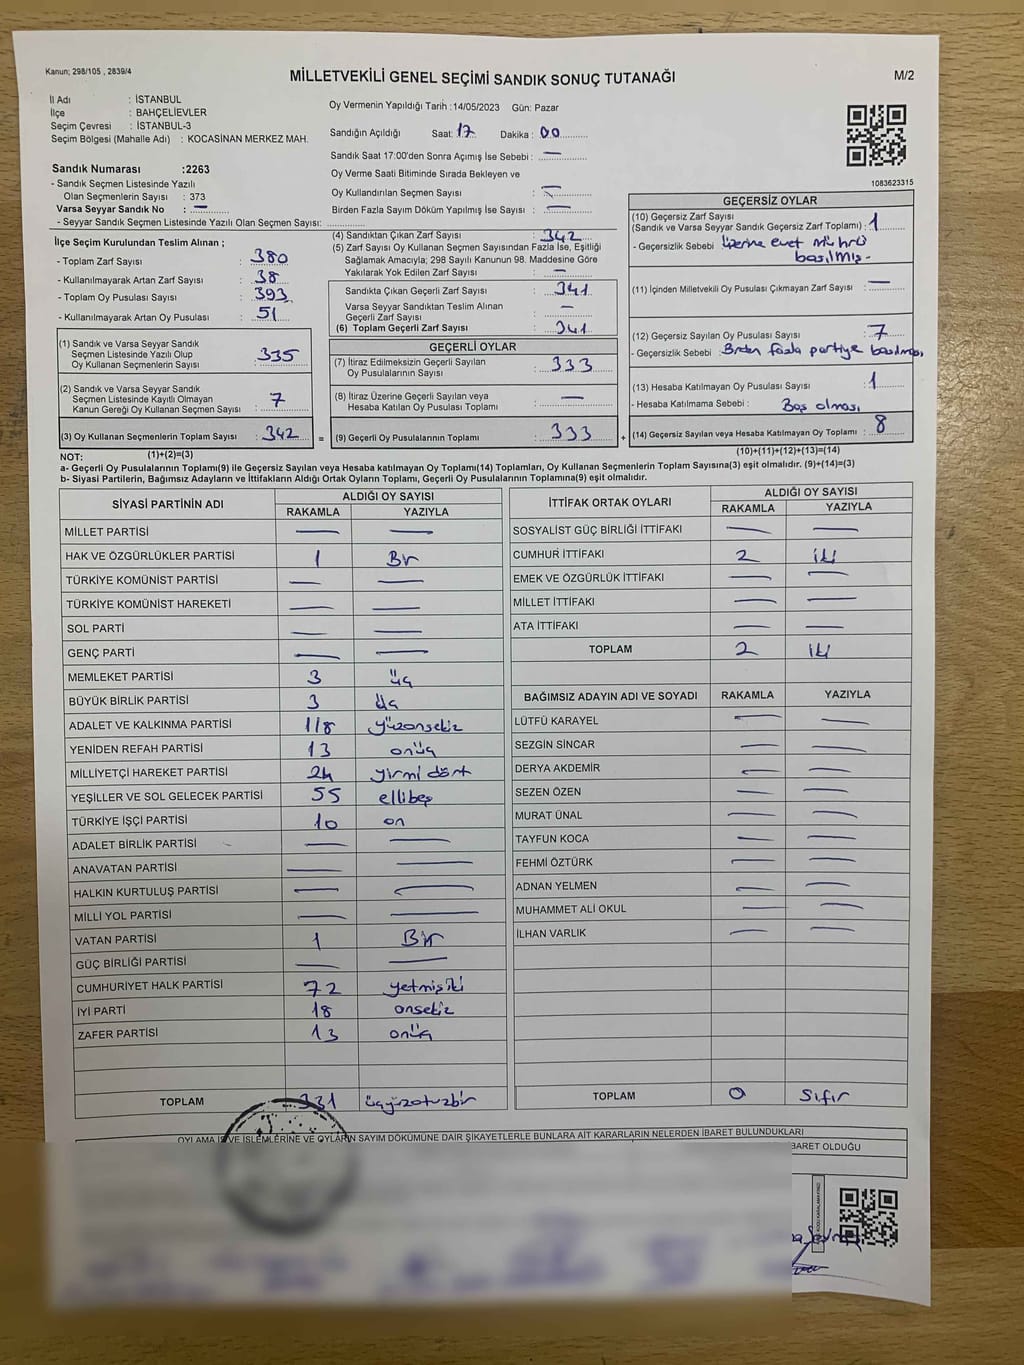 Kanun; 298/105 , 2839/4
MİLLETVEKİLİ GENEL SEÇİMİ SANDIK SONUÇ TUTANAĞI
M/2
İl Adı : İSTANBUL
İlçe : BAHÇELİEVLER
Seçim Çevresi : İSTANBUL-3
Seçim Bölgesi (Mahalle Adı) : KOCASİNAN MERKEZ MAH.
Oy Vermenin Yapıldığı Tarih :14/05/2023 Gün: Pazar
Sandığın Açıldığı Saat: 17 Dakika : 00
Sandık Saat 17:00'den Sonra Açımış İse Sebebi : —
Oy Verme Saati Bitiminde Sırada Bekleyen ve
Oy Kullandırılan Seçmen Sayısı : —
Birden Fazla Sayım Döküm Yapılmış İse Sayısı : —
1083623315
Sandık Numarası :2263
- Sandık Seçmen Listesinde Yazılı
Olan Seçmenlerin Sayısı : 373
Varsa Seyyar Sandık No : —
- Seyyar Sandık Seçmen Listesinde Yazılı Olan Seçmen Sayısı:
İlçe Seçim Kurulundan Teslim Alınan ;
- Toplam Zarf Sayısı : 380
- Kullanılmayarak Artan Zarf Sayısı : 38
- Toplam Oy Pusulası Sayısı : 393
- Kullanılmayarak Artan Oy Pusulası : 51
(1) Sandık ve Varsa Seyyar Sandık
Seçmen Listesinde Yazılı Olup
Oy Kullanan Seçmenlerin Sayısı : 335
(2) Sandık ve Varsa Seyyar Sandık
Seçmen Listesinde Kayıtlı Olmayan
Kanun Gereği Oy Kullanan Seçmen Sayısı : 7
(3) Oy Kullanan Seçmenlerin Toplam Sayısı : 342 =
(4) Sandıktan Çıkan Zarf Sayısı : 342
(5) Zarf Sayısı Oy Kullanan Seçmen Sayısından Fazla İse, Eşitliği
Sağlamak Amacıyla; 298 Sayılı Kanunun 98. Maddesine Göre
Yakılarak Yok Edilen Zarf Sayısı : —
Sandıkta Çıkan Geçerli Zarf Sayısı : 341
Varsa Seyyar Sandıktan Teslim Alınan
Geçerli Zarf Sayısı : —
(6) Toplam Geçerli Zarf Sayısı : 341
GEÇERLİ OYLAR
(7) İtiraz Edilmeksizin Geçerli Sayılan
Oy Pusulalarının Sayısı : 333
(8) İtiraz Üzerine Geçerli Sayılan veya
Hesaba Katılan Oy Pusulaları Toplamı : —
(9) Geçerli Oy Pusulalarının Toplamı : 333 +
GEÇERSİZ OYLAR
(10) Geçersiz Zarf Sayısı
(Sandık ve Varsa Seyyar Sandık Geçersiz Zarf Toplamı) : 1
- Geçersizlik Sebebi : üzerine evet mührü
basılmış-
(11) İçinden Milletvekili Oy Pusulası Çıkmayan Zarf Sayısı : —
(12) Geçersiz Sayılan Oy Pusulası Sayısı : 7
- Geçersizlik Sebebi : Birden fazla partiye basılması
(13) Hesaba Katılmayan Oy Pusulası Sayısı : 1
- Hesaba Katılmama Sebebi : Boş olması
(14) Geçersiz Sayılan veya Hesaba Katılmayan Oy Toplamı : 8
NOT: (1)+(2)=(3) (10)+(11)+(12)+(13)=(14)
a- Geçerli Oy Pusulalarının Toplamı(9) ile Geçersiz Sayılan veya Hesaba katılmayan Oy Toplamı(14) Toplamları, Oy Kullanan Seçmenlerin Toplam Sayısına(3) eşit olmalıdır. (9)+(14)=(3)
b- Siyasi Partilerin, Bağımsız Adayların ve İttifakların Aldığı Ortak Oyların Toplamı, Geçerli Oy Pusulalarının Toplamına(9) eşit olmalıdır.
SİYASİ PARTİNİN ADI ALDIĞI OY SAYISI
RAKAMLA YAZIYLA
MİLLET PARTİSİ — —
HAK VE ÖZGÜRLÜKLER PARTİSİ 1 Bir
TÜRKİYE KOMÜNİST PARTİSİ — —
TÜRKİYE KOMÜNİST HAREKETİ — —
SOL PARTİ — —
GENÇ PARTİ — —
MEMLEKET PARTİSİ 3 üç
BÜYÜK BİRLİK PARTİSİ 3 üç
ADALET VE KALKINMA PARTİSİ 118 yüzonsekiz
YENİDEN REFAH PARTİSİ 13 onüç
MİLLİYETÇİ HAREKET PARTİSİ 24 yirmi dört
YEŞİLLER VE SOL GELECEK PARTİSİ 55 ellibeş
TÜRKİYE İŞÇİ PARTİSİ 10 on
ADALET BİRLİK PARTİSİ — —
ANAVATAN PARTİSİ — —
HALKIN KURTULUŞ PARTİSİ — —
MİLLİ YOL PARTİSİ — —
VATAN PARTİSİ 1 Bir
GÜÇ BİRLİĞİ PARTİSİ — —
CUMHURİYET HALK PARTİSİ 72 yetmişiki
İYİ PARTİ 18 onsekiz
ZAFER PARTİSİ 13 onüç
TOPLAM 331 üçyüzotuzbir
İTTİFAK ORTAK OYLARI ALDIĞI OY SAYISI
RAKAMLA YAZIYLA
SOSYALİST GÜÇ BİRLİĞİ İTTİFAKI — —
CUMHUR İTTİFAKI 2 iki
EMEK VE ÖZGÜRLÜK İTTİFAKI — —
MİLLET İTTİFAKI — —
ATA İTTİFAKI — —
TOPLAM 2 iki
BAĞIMSIZ ADAYIN ADI VE SOYADI RAKAMLA YAZIYLA
LÜTFÜ KARAYEL — —
SEZGİN SİNCAR — —
DERYA AKDEMİR — —
SEZEN ÖZEN — —
MURAT ÜNAL — —
TAYFUN KOCA — —
FEHMİ ÖZTÜRK — —
ADNAN YELMEN — —
MUHAMMET ALİ OKUL — —
İLHAN VARLIK — —
TOPLAM 0 Sıfır
OYLAMA İŞ VE İŞLEMLERİNE VE OYLARIN SAYIM DÖKÜMÜNE DAİR ŞİKAYETLERLE BUNLARA AİT KARARLARIN NELERDEN İBARET BULUNDUKLARI
İBARET OLDUĞU